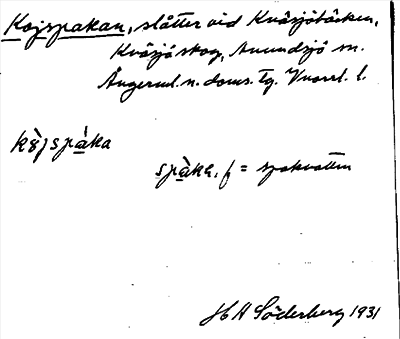 Kojspakan, slåtter vid Kvärjöbäcken,
Kväsjöskog, Anundsjö sn.
Ångerml. n. doms. Tg. Vvarrl. l.
kò̈jspàka
spàka, f = spakvatten
H Söderberg 1931